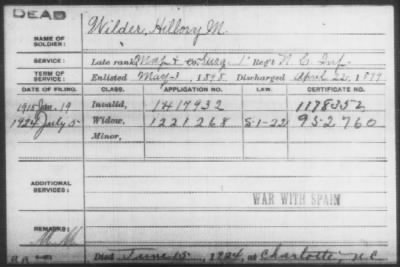 DEAD
NAME OF SOLDIER: Wilder, Hillory M.
SERVICE: Late rank Maj & Surg, 1 Reg't N. C. Inf.
TERM OF SERVICE: Enlisted May 3, 1898 Discharged April 22, 1899
DATE OF FILING. CLASS. APPLICATION NO. LAW. CERTIFICATE NO.
1915 Jan. 19 Invalid, 1417432 1178352
1924 July 5 Widow, 1221268 S-1-22 952760
Minor,
ADDITIONAL SERVICES:
WAR WITH SPAIN
REMARKS:
Died June 15, 1924, at Charlotte, N.C.